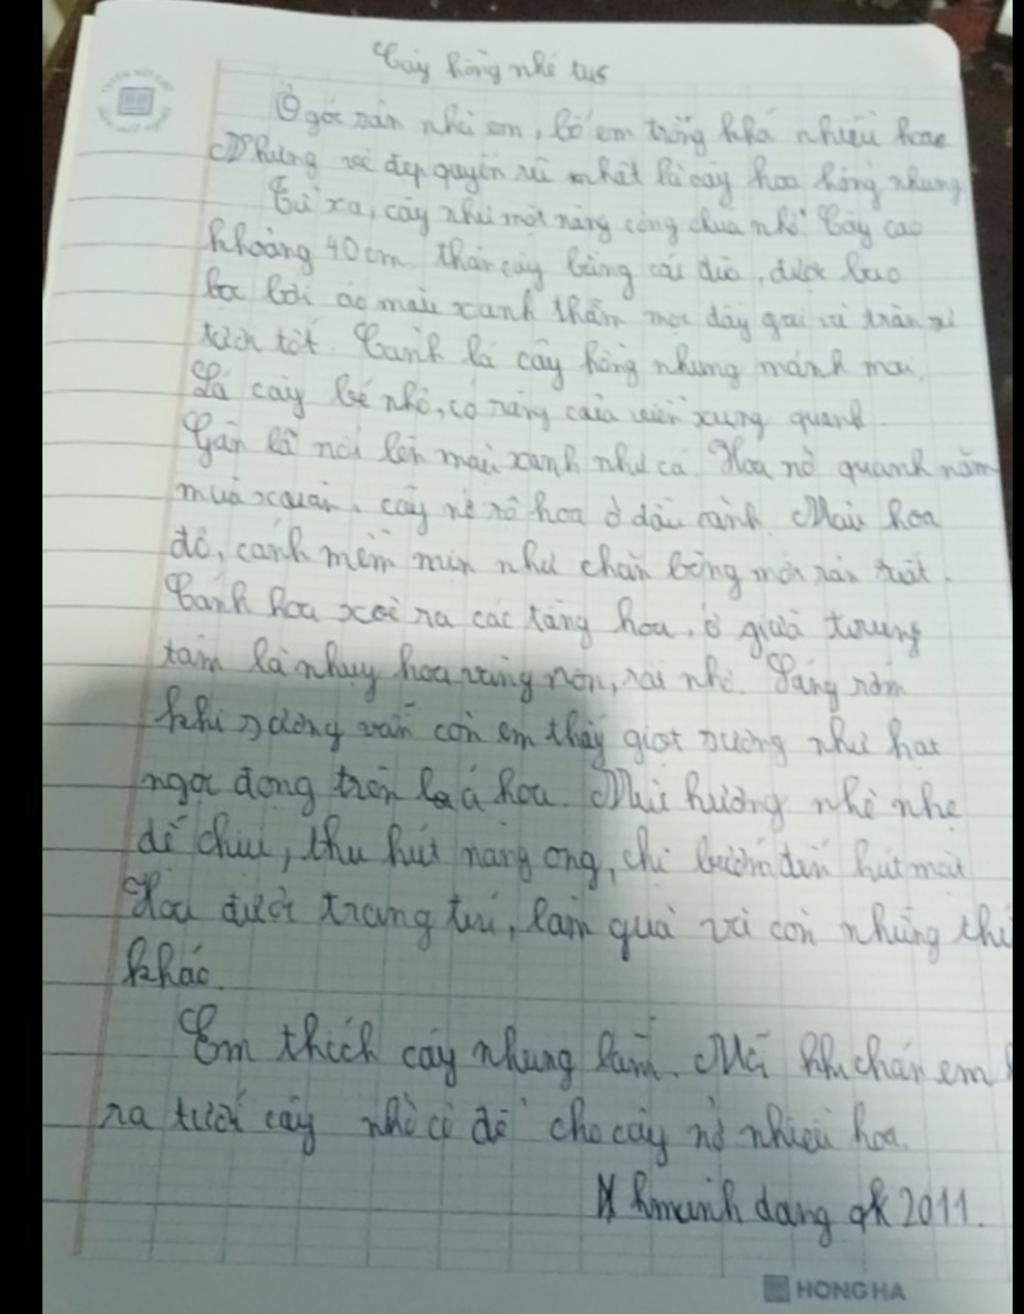 Cây hồng nhà
Ở góc sân nhà em, bố em trồng khá nhiều hoa
Nhưng vẻ đẹp quyến rũ nhất là cây hoa hồng nhung
Từ xa, cây như một nàng công chúa nhỏ. Cây cao
khoảng 40cm thân cây bằng cái đũa, được bao
bọc bởi áo màu xanh thẫm mọc đầy gai
Cành lá cây hồng nhung mảnh mai.
Lá cây bé nhỏ, có răng cưa viền xung quanh
Gân lá nổi lên màu xanh như Hoa nở quanh năm
mùa xuân, cây nở rộ hoa ở đầu cành Màu hoa
đỏ, cánh mềm mịn như chăn bông mới
Cánh hoa xoè ra các tầng hoa, ở giữa trung
tâm là nhuỵ hoa vàng non, nhỏ. Sáng sớm
khi sương vẫn còn em thấy giọt sương như hạt
ngọc đọng trên lá hoa. Mùi hương nhè nhẹ
dễ chịu, thu hút nàng ong, chị bướm đến hút mật
Hoa được trang trí, làm quà và còn những thứ
khác.
Em thích cây nhung lắm. Mỗi khi chán em
ra tưới cây nhổ cỏ để cho cây nở nhiều hoa.
dang qk 2011.
HONG HA